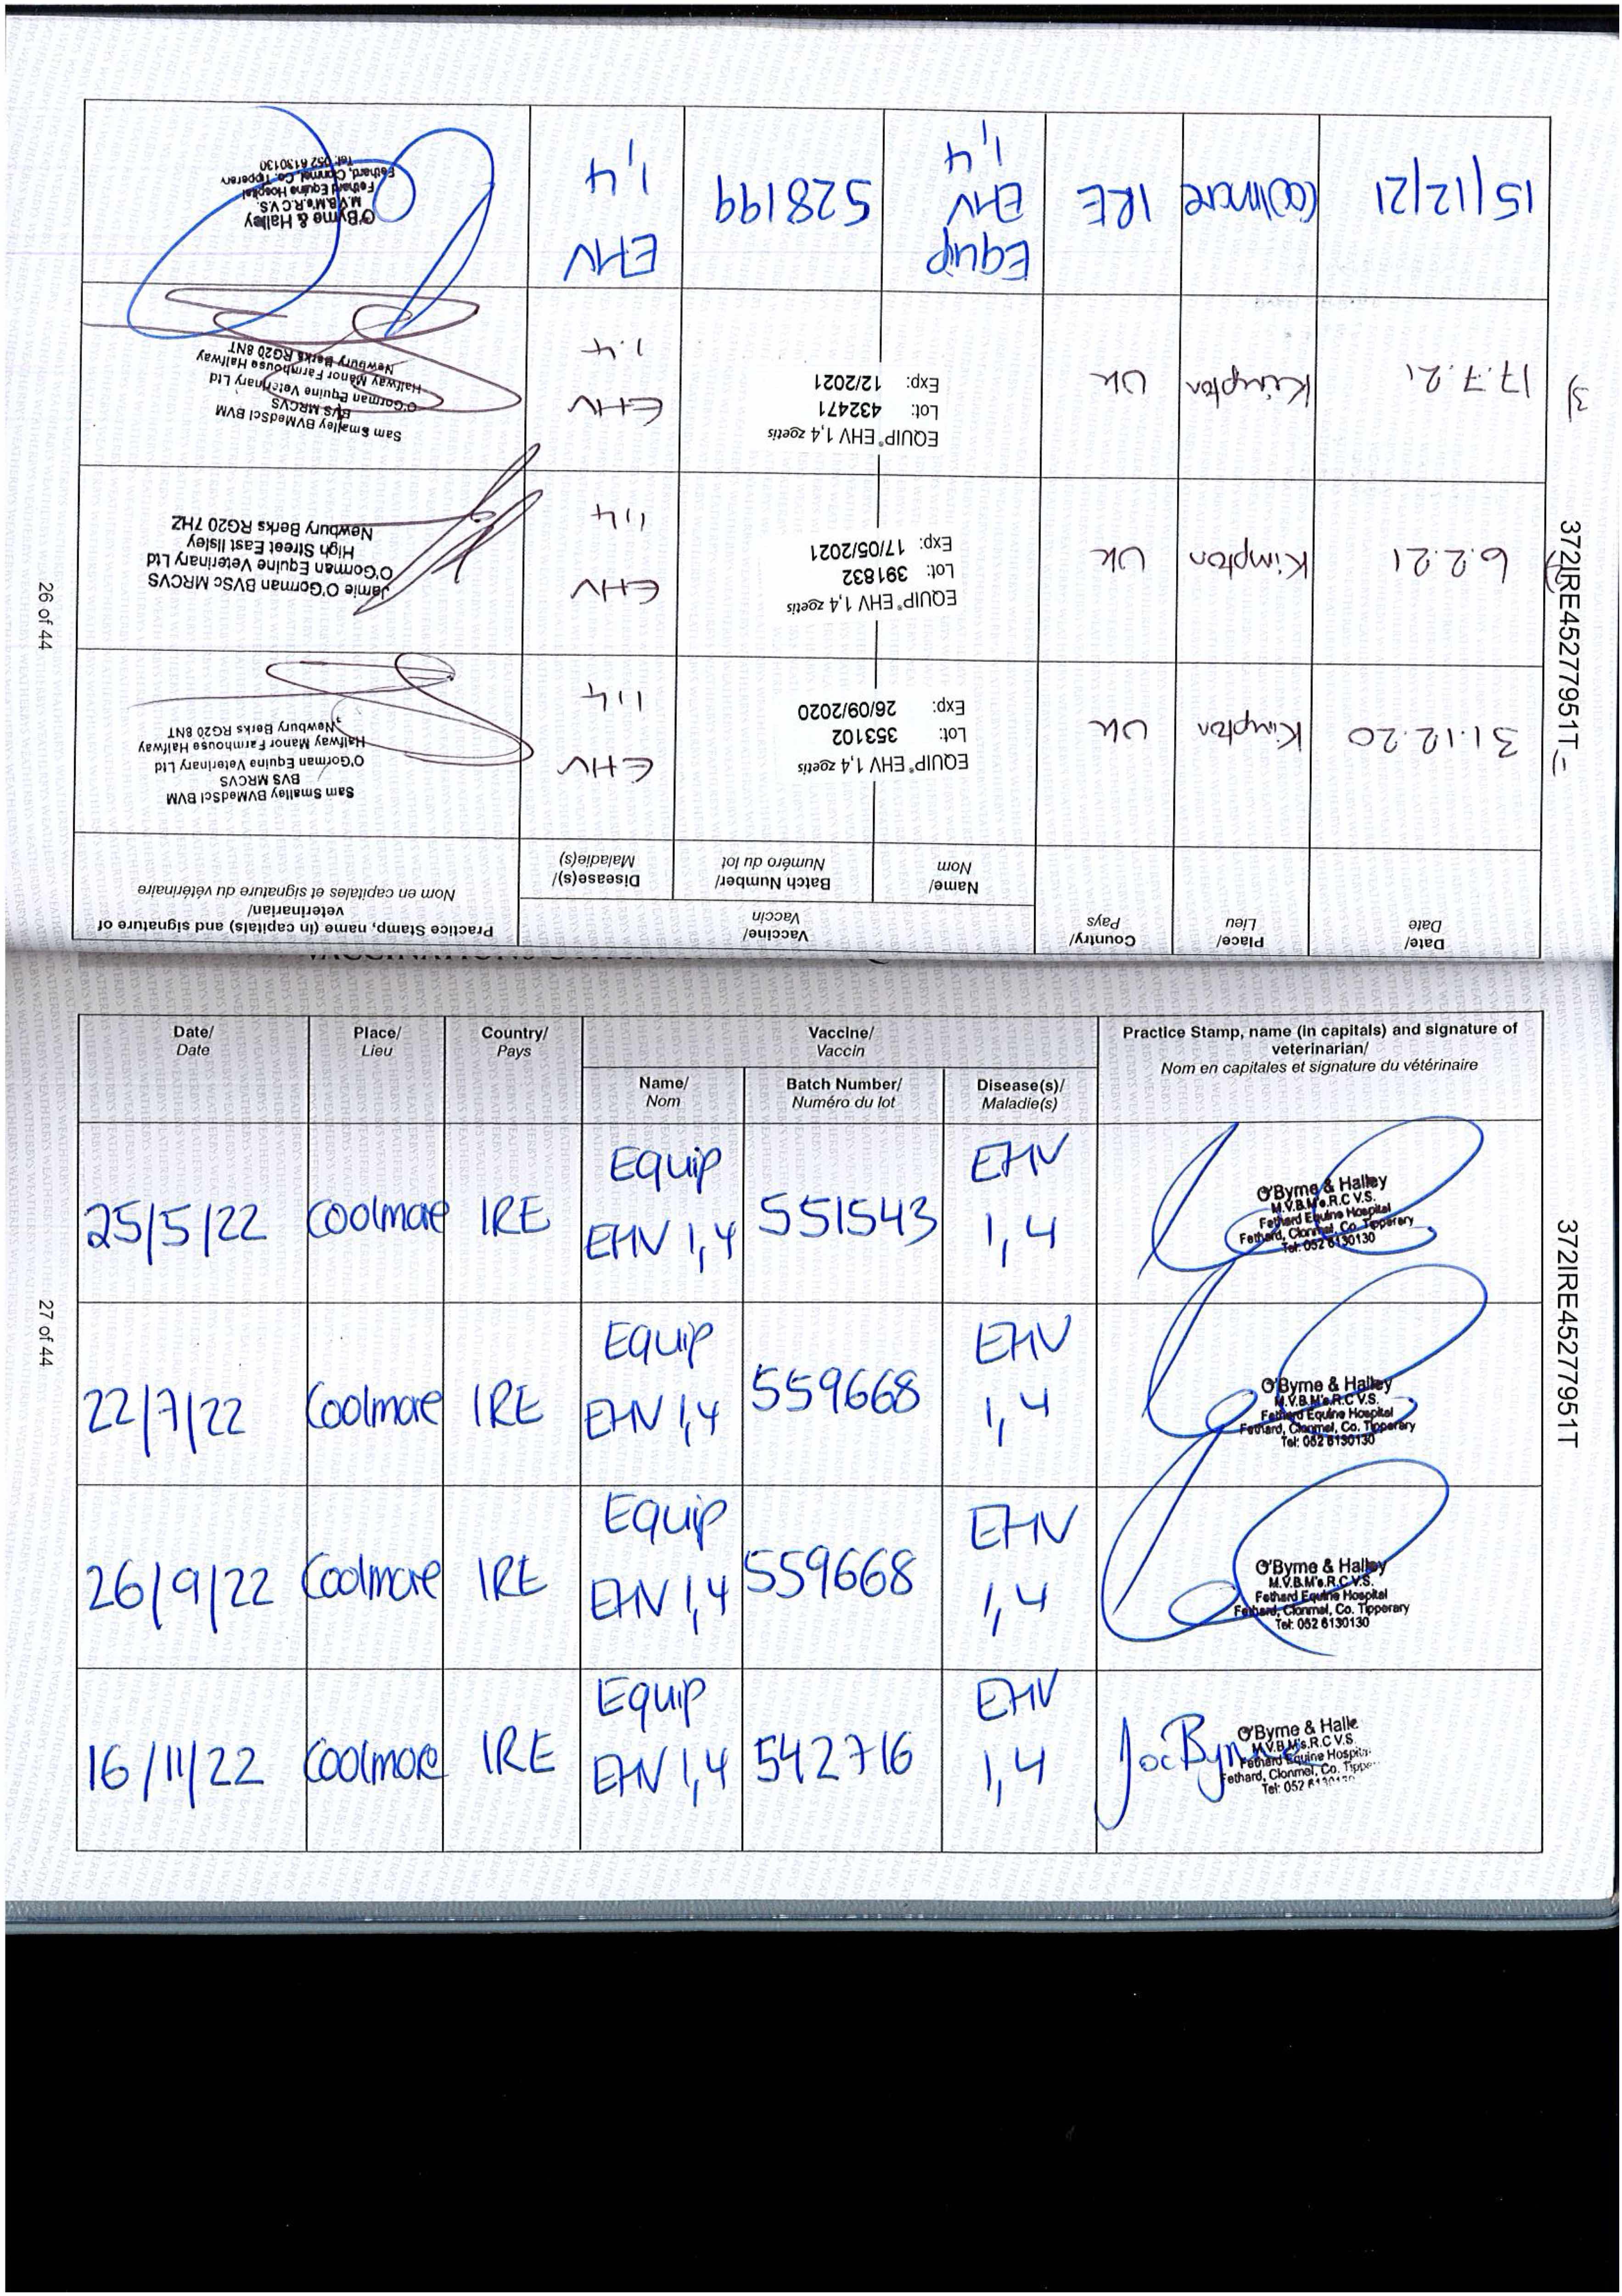 372IRE45277951T
Date/
Date
Place/
Lieu
Country/
Pays
Vaccine/
Vaccin
Name/
Nom
Batch Number/
Numéro du lot
Disease(s)/
Maladie(s)
Practice Stamp, name (in capitals) and signature of
veterinarian/
Nom en capitales et signature du vétérinaire
1)
31.12.20
Kimpton
UK
EQUIP® EHV 1,4 zoetis
Lot: 353102
Exp: 26/09/2020
EHV
1,4
Sam Smalley BVMedSci BVM
BVS MRCVS
O'Gorman Equine Veterinary Ltd
Halfway Manor Farmhouse Halfway
Newbury Berks RG20 8NT
2)
6.2.21
Kimpton
UK
EQUIP® EHV 1,4 zoetis
Lot: 391832
Exp: 17/05/2021
EHV
1,4
Jamie O'Gorman BVSc MRCVS
O'Gorman Equine Veterinary Ltd
High Street East Ilsley
Newbury Berks RG20 7HZ
3)
17.7.21
Kimpton
UK
EQUIP® EHV 1,4 zoetis
Lot: 432471
Exp: 12/2021
EHV
1.4
Sam Smalley BVMedSci BVM
BVS MRCVS
O'Gorman Equine Veterinary Ltd
Halfway Manor Farmhouse Halfway
Newbury Berks RG20 8NT
15/12/21
Coolmore
IRE
Equip
EHV
1,4
528199
EHV
1,4
O'Byrne & Halley
M.V.B.M's.R.C.V.S.
Fethard Equine Hospital
Fethard, Clonmel, Co. Tipperary
Tel: 052 6130130
26 of 44
372IRE45277951T
Date/
Date
Place/
Lieu
Country/
Pays
Vaccine/
Vaccin
Name/
Nom
Batch Number/
Numéro du lot
Disease(s)/
Maladie(s)
Practice Stamp, name (in capitals) and signature of
veterinarian/
Nom en capitales et signature du vétérinaire
25/5/22
Coolmore
IRE
Equip
EHV 1,4
551543
EHV
1,4
O'Byrne & Halley
M.V.B.M's.R.C V.S.
Fethard Equine Hospital
Fethard, Clonmel, Co. Tipperary
Tel: 052 6130130
22/7/22
Coolmore
IRE
Equip
EHV 1,4
559668
EHV
1,4
O'Byrne & Halley
M.V.B.M's.R.C V.S.
Fethard Equine Hospital
Fethard, Clonmel, Co. Tipperary
Tel: 052 6130130
26/9/22
Coolmore
IRE
Equip
EHV 1,4
559668
EHV
1,4
O'Byrne & Halley
M.V.B.M's.R.C V.S.
Fethard Equine Hospital
Fethard, Clonmel, Co. Tipperary
Tel: 052 6130130
16/11/22
Coolmore
IRE
Equip
EHV 1,4
542716
EHV
1,4
O'Byrne & Halle
M.V.B.M's.R.C V.S.
Fethard Equine Hospita
Fethard, Clonmel, Co. Tippe
Tel: 052
27 of 44